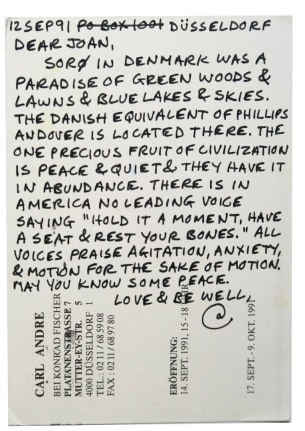 12SEP91 PO BOX 1001 DÜSSELDORF
DEAR JOAN,
SORØ IN DENMARK WAS A
PARADISE OF GREEN WOODS &
LAWNS & BLUE LAKES & SKIES.
THE DANISH EQUIVALENT OF PHILLIPS
ANDOVER IS LOCATED THERE. THE
ONE PRECIOUS FRUIT OF CIVILIZATION
IS PEACE & QUIET & THEY HAVE IT
IN ABUNDANCE. THERE IS IN
AMERICA NO LEADING VOICE
SAYING "HOLD IT A MOMENT, HAVE
A SEAT & REST YOUR BONES." ALL
VOICES PRAISE AGITATION, ANXIETY,
& MOTION FOR THE SAKE OF MOTION.
MAY YOU KNOW SOME PEACE.
LOVE & BE WELL,
@
CARL ANDRE
BEI KONRAD FISCHER
PLATANENSTRASSE 7
MUTTER-EY-STR. 5
4000 DÜSSELDORF 1
TEL.: 02 11 / 68 59 08
FAX : 02 11 / 68 97 80
ERÖFFNUNG:
14. SEPT. 1991, 15 - 18
17. SEPT. - 9. OKT. 1991